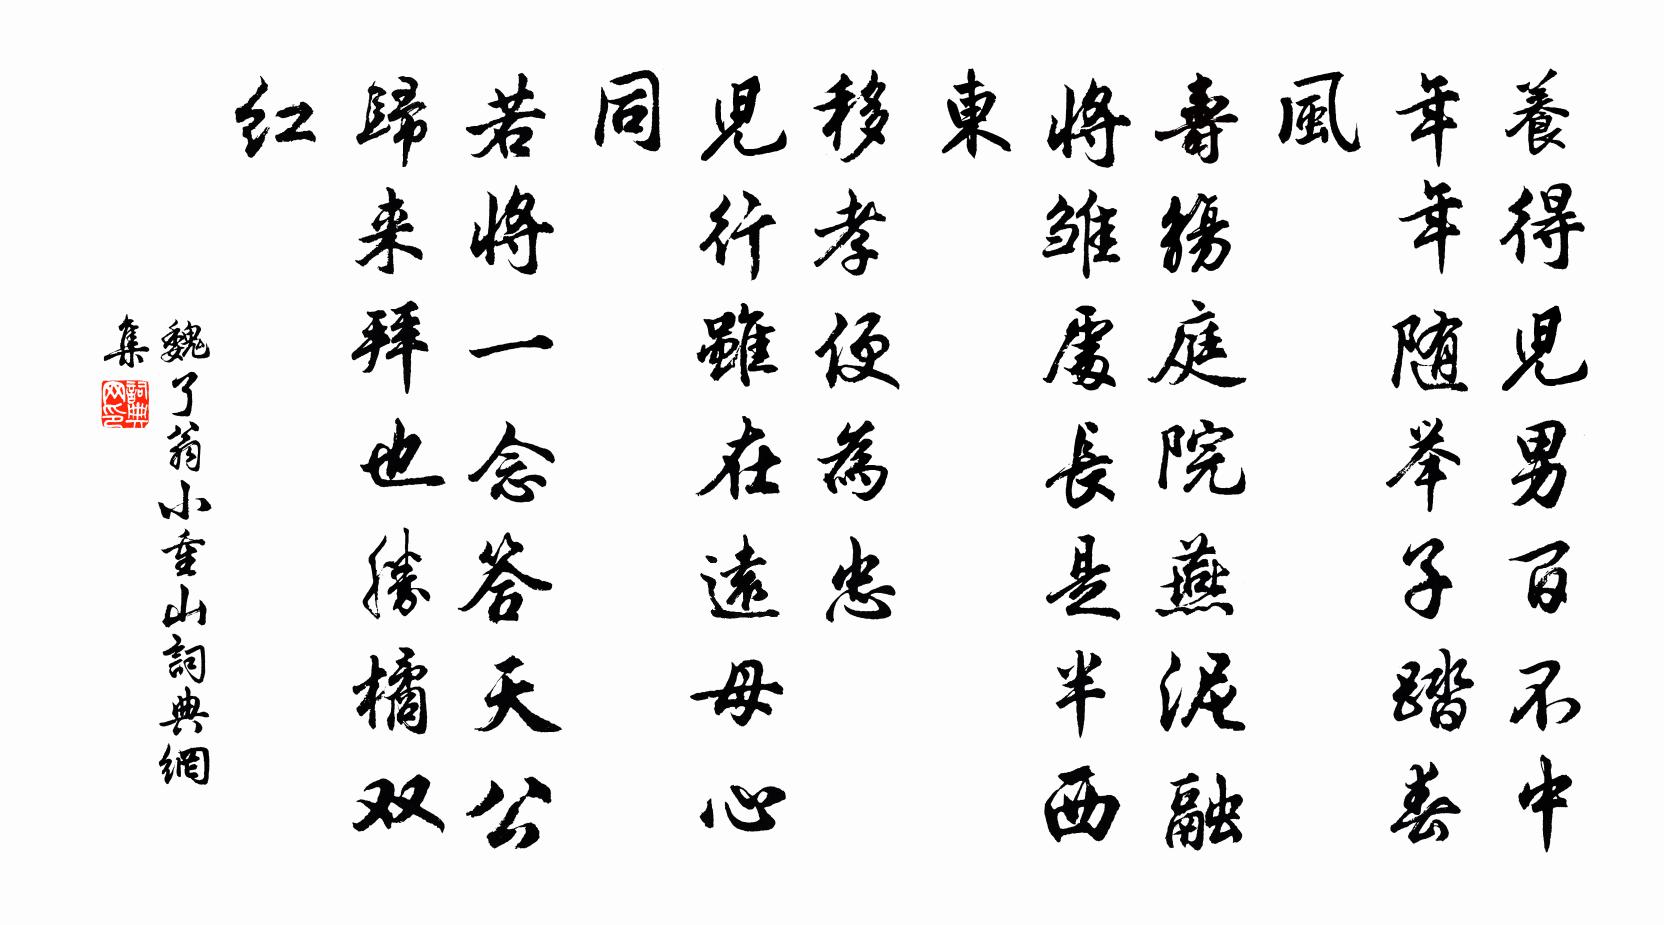 養得児男百不中
年年随举子踏春
風
壽觴庭院燕泥融
將雏處長是半西
東
移孝便為忠
児行雖在遠母心
同
若將一念答天公
歸来拜也勝橘双
红
魏了翁小重山詞典網
集
詞典網印